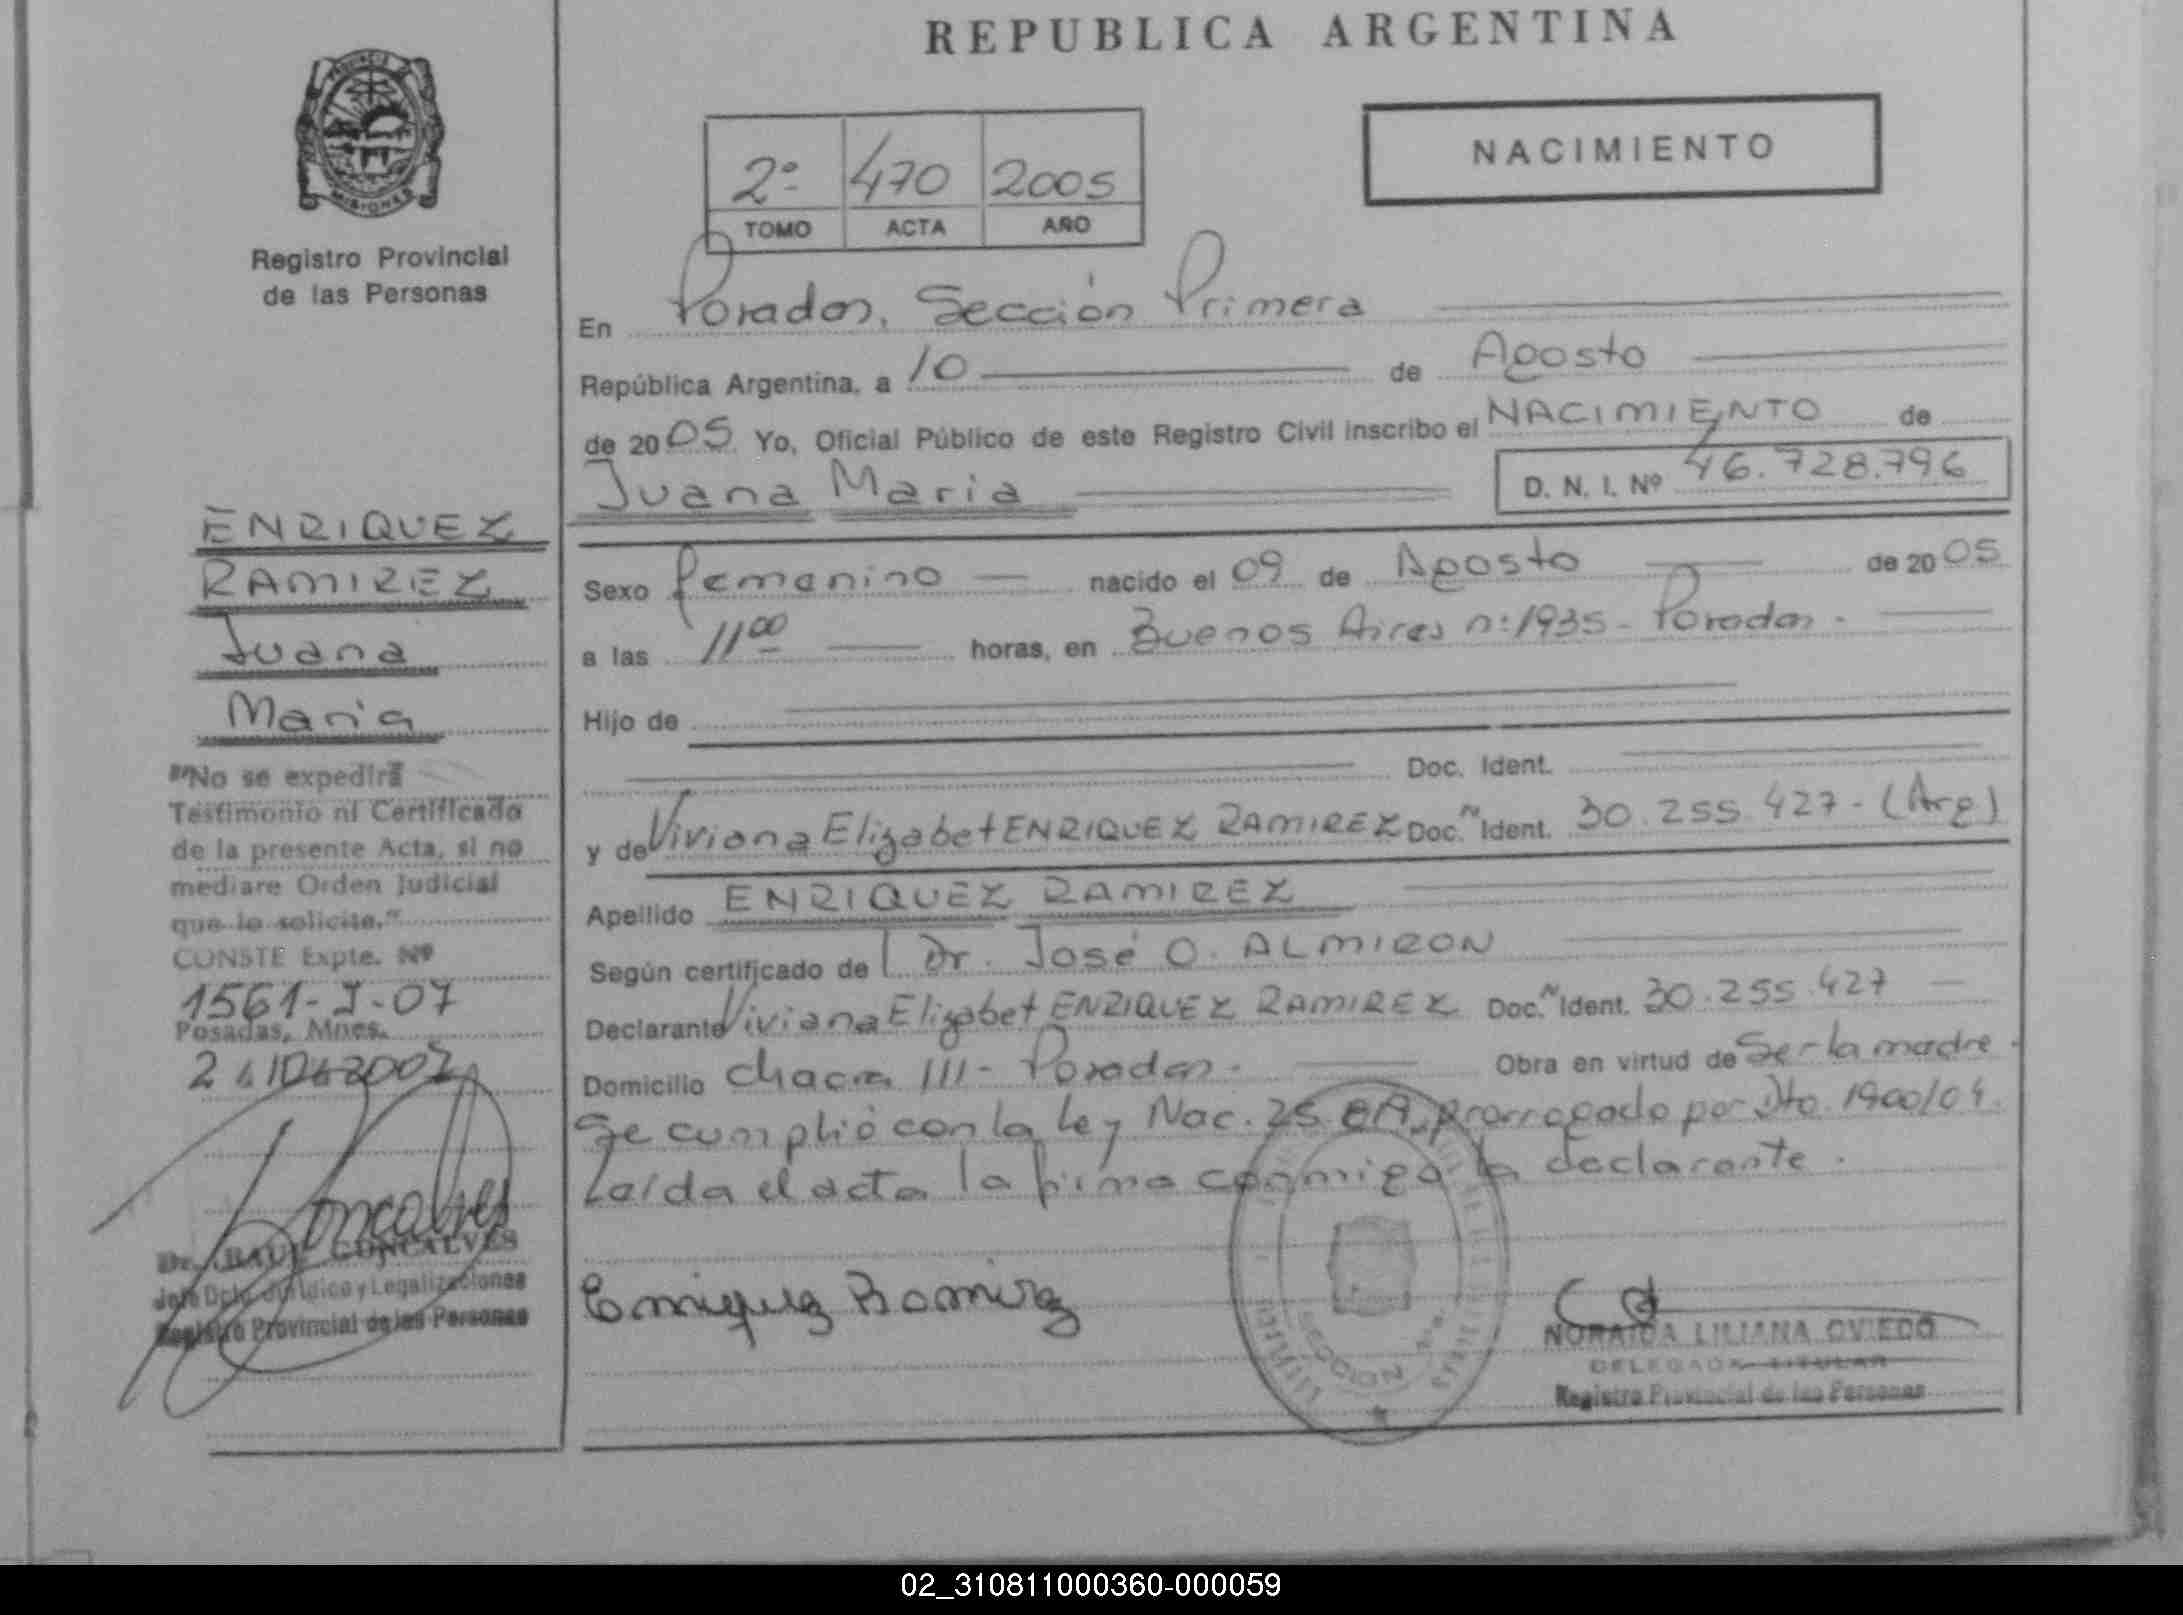 REPUBLICA ARGENTINA
PROVINCIA DE
MISIONES
Registro Provincial
de las Personas
NACIMIENTO
2º 470 2005
TOMO ACTA AÑO
En Posadas, Sección Primera
República Argentina, a 10 de Agosto
de 2005 Yo, Oficial Público de este Registro Civil inscribo el NACIMIENTO de
Juana Maria D. N. I. Nº 46.728.796
Sexo femenino nacido el 09 de Agosto de 2005
a las 11 00 horas, en Buenos Aires nº 1935 - Posadas.
Hijo de
Doc. Ident.
y de Viviana Elizabet ENRIQUEZ RAMIREZ Doc. Ident. 30.255.427 - (Arg)
Apellido ENRIQUEZ RAMIREZ
Según certificado de Dr. José O. ALMIRON
Declarante Viviana Elizabet ENRIQUEZ RAMIREZ Doc. Ident. 30.255.427
Domicilio Chacra 111 - Posadas. Obra en virtud de Ser la madre.
Se cumplió con la ley Nac. 25. prorrogado por Dto. 1900/04.
Leída el acta la firma conmigo la declarante.
Enriquez Ramirez
SECCION 1ra
NORAIDA LILIANA OVIEDO
DELEGADA TITULAR
Registro Provincial de las Personas
ENRIQUEZ
RAMIREZ
Juana
Maria
"No se expedirá
Testimonio ni Certificado
de la presente Acta, si no
mediare Orden Judicial
que lo solicite."
CONSTE Expte. Nº
1561-J-07
Posadas, Mnes.
Goncalves
Dr. RAUL GONCALVES
Jefe Dpto. Jurídico y Legalizaciones
Registro Provincial de las Personas
02_310811000360-000059